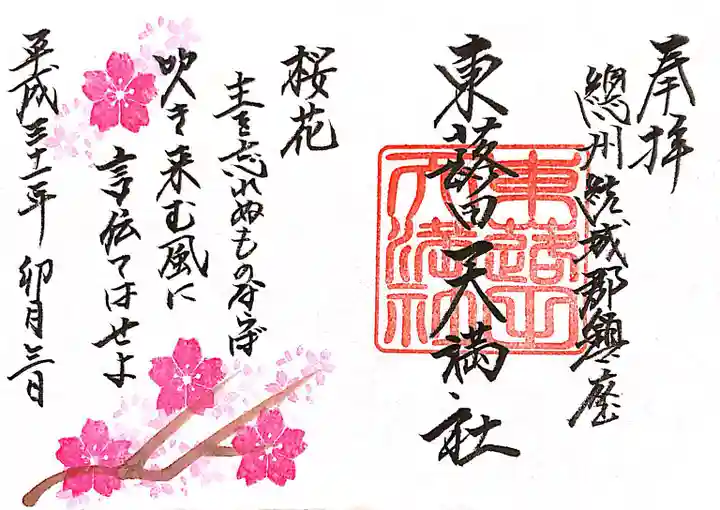 奉拝
總州結城郡鎮座
東蕗田天満社
東蕗田天満社
桜花
主を忘れぬものならば
吹き来む風に
言伝てはせよ
平成三十一年 卯月三日